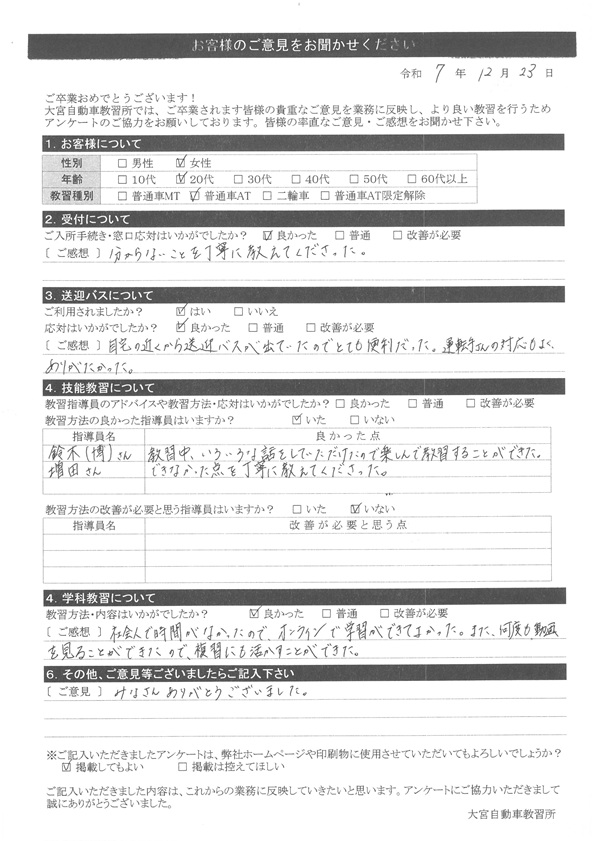 お客様のご意見をお聞かせください
令和 7 年 12 月 23 日
ご卒業おめでとうございます!
大宮自動車教習所では、ご卒業されます皆様の貴重なご意見を業務に反映し、より良い教習を行うため
アンケートのご協力をお願いしております。皆様の率直なご意見・ご感想をお聞かせ下さい。
1. お客様について
性別 □ 男性 ☑ 女性
年齢 □ 10代 ☑ 20代 □ 30代 □ 40代 □ 50代 □ 60代以上
教習種別 □ 普通車MT ☑ 普通車AT □ 二輪車 □ 普通車AT限定解除
2. 受付について
ご入所手続き・窓口応対はいかがでしたか? ☑ 良かった □ 普通 □ 改善が必要
〔 ご感想 〕 分からないことを丁寧に教えてくださった。
3. 送迎バスについて
ご利用されましたか? ☑ はい □ いいえ
応対はいかがでしたか? ☑ 良かった □ 普通 □ 改善が必要
〔 ご感想 〕 自宅の近くから送迎バスが出ていたのでとても便利だった。運転手さんの対応もよく、
ありがたかった。
4. 技能教習について
教習指導員のアドバイスや教習方法・応対はいかがでしたか? □ 良かった □ 普通 □ 改善が必要
教習方法の良かった指導員はいますか? ☑ いた □ いない
指導員名 良かった点
鈴木(博)さん 教習中、いろいろな話をしていただけたので楽しんで教習することができた。
増田さん できなかった点を丁寧に教えてくださった。
教習方法の改善が必要と思う指導員はいますか? □ いた ☑ いない
指導員名 改善が必要と思う点
4. 学科教習について
教習方法・内容はいかがでしたか? ☑ 良かった □ 普通 □ 改善が必要
〔 ご感想 〕 社会人で時間がなかったので、オンラインで学習ができてよかった。また、何度も動画
を見ることができたので、復習にも活かすことができた。
6. その他、ご意見等ございましたらご記入下さい
〔 ご意見 〕 みなさんありがとうございました。
※ご記入いただきましたアンケートは、弊社ホームページや印刷物に使用させていただいてもよろしいでしょうか?
☑ 掲載してもよい □ 掲載は控えてほしい
ご記入いただきました内容は、これからの業務に反映していきたいと思います。アンケートにご協力いただきまして
誠にありがとうございました。
大宮自動車教習所